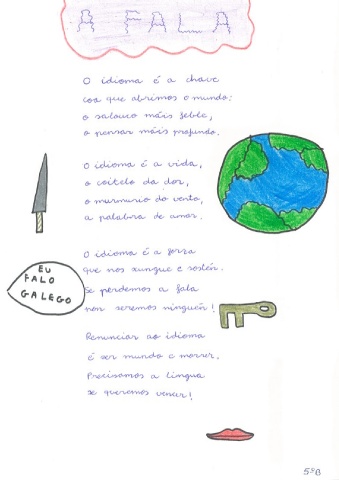 A FALA
O idioma é a chave
coa que abrimos o mundo:
o salouco máis feble,
o pensar máis profundo.
O idioma é a vida,
o coitelo da dor,
o murmurio do vento,
a palabra de amor.
O idioma é a forza
que nos xungue e sostén.
Se perdemos a fala
non seremos ninguén!
EU
FALO
GALEGO
Renunciar ao idioma
é ser mundo e morrer.
Precisamos a lingua
se queremos vencer!
5ºB